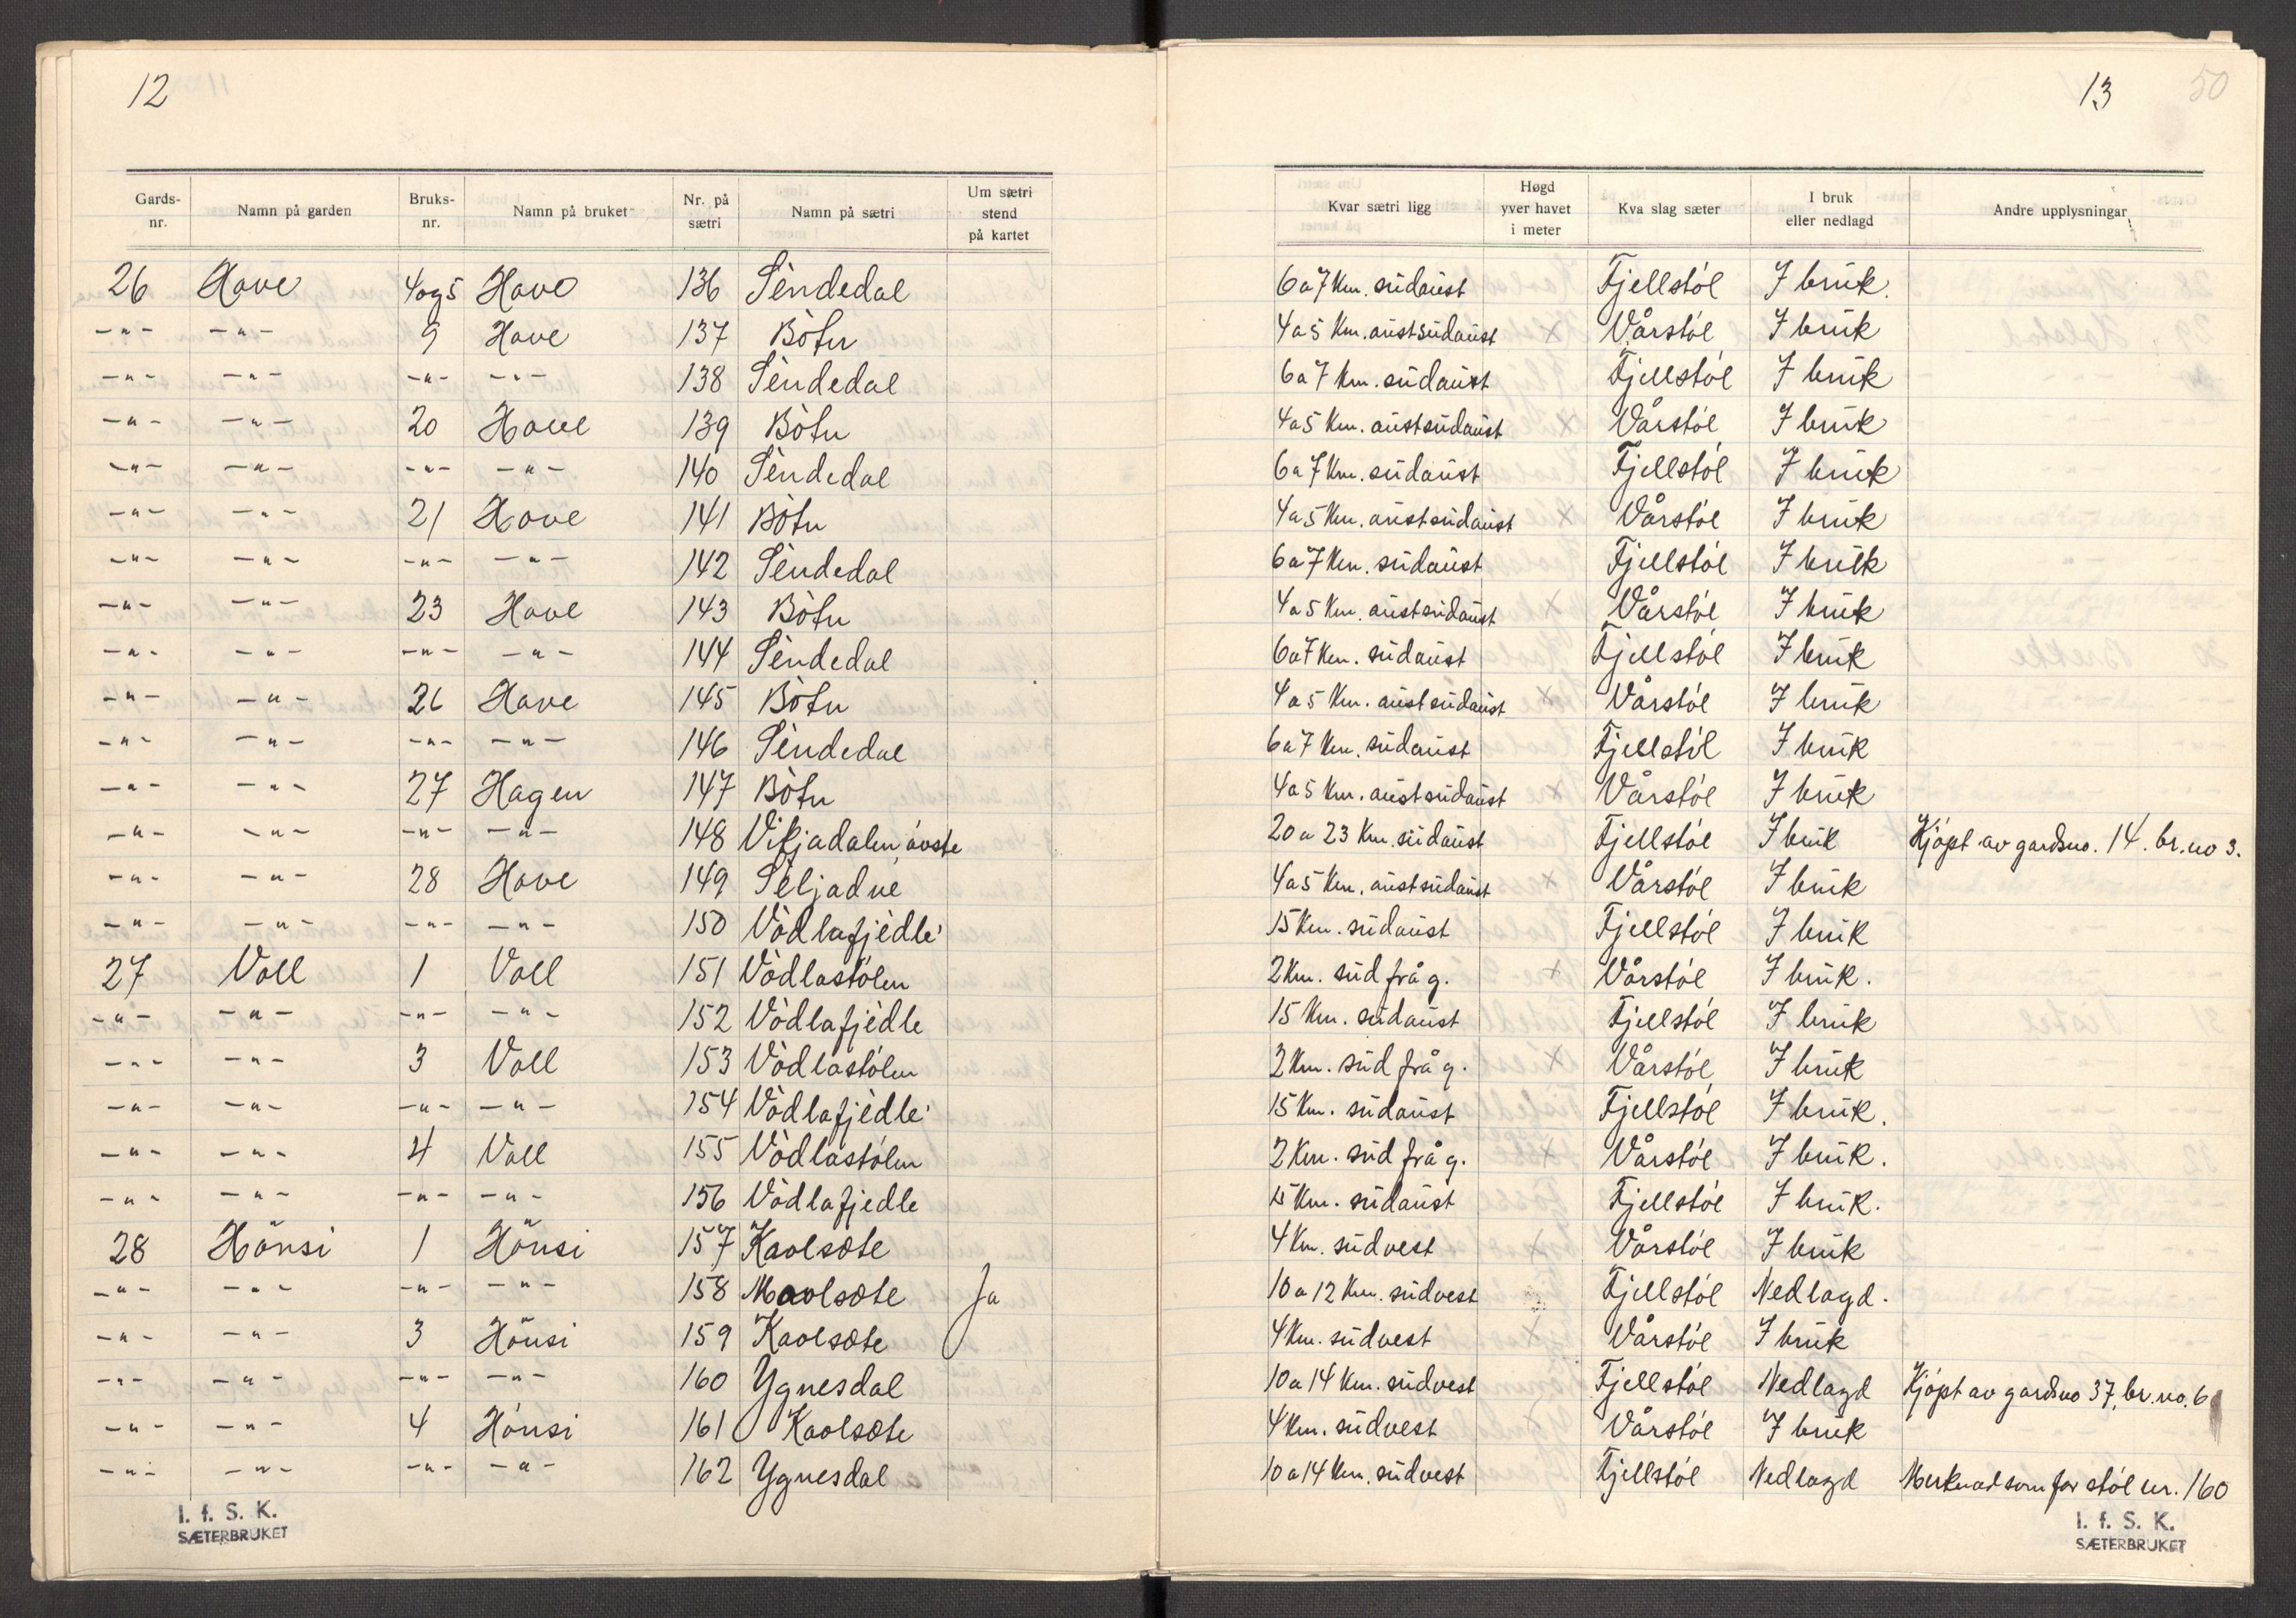 12
Gards-nr. Namn på garden Bruks-nr. Namn på bruket Nr. på sætri Namn på sætri Um sætri stend på kartet
26 Hove 4og5 Hove 136 Sèndedal
-"- -"- 9 Hove 137 Bòtn
-"- -"- -"- -"- 138 Sèndedal
-"- -"- 20 Hove 139 Bòtn
-"- -"- -"- -"- 140 Sèndedal
-"- -"- 21 Hove 141 Bòtn
-"- -"- -"- -"- 142 Sèndedal
-"- -"- 23 Hove 143 Bòtn
-"- -"- -"- -"- 144 Sèndedal
-"- -"- 26 Hove 145 Bòtn
-"- -"- -"- -"- 146 Sèndedal
-"- -"- 27 Hagen 147 Bòtn
-"- -"- -"- -"- 148 Vikjadalen óvste
-"- -"- 28 Hove 149 Seljadne
-"- -"- -"- -"- 150 Vòdlafjèdle
27 Voll 1 Voll 151 Vòdlastólen
-"- -"- -"- -"- 152 Vòdlafjèdle
-"- -"- 3 Voll 153 Vòdlastólen
-"- -"- -"- -"- 154 Vòdlafjèdle
-"- -"- 4 Voll 155 Vòdlastólen
-"- -"- -"- -"- 156 Vòdlafjèdle
28 Hönsi 1 Hönsi 157 Kaolsæte
-"- -"- -"- -"- 158 Maolsæte Ja
-"- -"- 3 Hönsi 159 Kaolsæte
-"- -"- -"- -"- 160 Ygnesdal
-"- -"- 4 Hönsi 161 Kaolsæte
-"- -"- -"- -"- 162 Ygnesdal
I. f. S. K.
SÆTERBRUKET
13 50
Kvar sætri ligg Høgd yver havet i meter Kva slag sæter I bruk eller nedlagd Andre upplysningar
6 a 7 Km. sudaust Fjellstól I bruk.
4 a 5 Km. austsudaust x Vårstól I bruk
6 a 7 Km. sudaust Fjellstól I bruk
4 a 5 Km. austsudaust x Vårstól I bruk
6 a 7 Km. sudaust Fjellstól I bruk
4 a 5 Km. austsudaust x Vårstól I bruk
6 a 7 Km. sudaust Fjellstól I bruk
4 a 5 Km. austsudaust x Vårstól I bruk
6 a 7 Km. sudaust Fjellstól I bruk
4 a 5 Km. austsudaust x Vårstól I bruk
6 a 7 Km. sudaust Fjellstól I bruk
4 a 5 Km. austsudaust x Vårstól I bruk
20 a 23 Km. sudaust Fjellstól I bruk Kjöpt av gardsno. 14. br. no 3.
4 a 5 Km. austsudaust x Vårstól I bruk
15 Km. sudaust Fjellstól I bruk
2 Km. sud frå g. x Vårstól I bruk.
15 Km. sudaust Fjellstól I bruk
2 Km. sud frå g. x Vårstól I bruk
15 Km. sudaust Fjellstól I bruk.
2 Km. sud frå g. x Vårstól I bruk.
15 Km. sudaust Fjellstól I bruk.
4 Km. sudvest x Vårstól I bruk
10 a 12 Km. sudvest Fjellstól Nedlagd.
4 Km. sudvest x Vårstól I bruk
10 a 14 Km. sudvest Fjellstól Nedlagd Kjöpt av gardsno 37, br. no. 6
4 Km. sudvest x Vårstól I bruk
10 a 14 Km. sudvest Fjellstól Nedlagd Merknad som for stól nr. 160
I. f. S. K.
SÆTERBRUKET